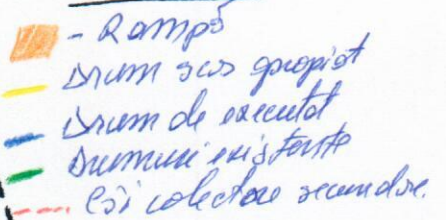 - Rampă
Drum scos apropiat
Drum de executat
Drumuri existente
Căi colectare secundare.